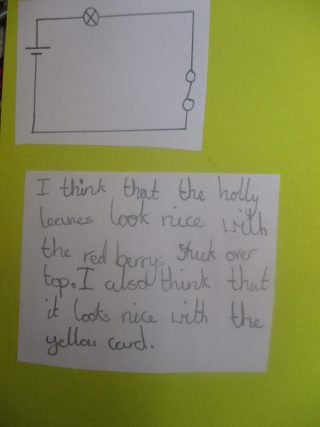 I think that the holly
leaves look nice with
the red berrys stuck over
top. I also think that
it looks nice with the
yellow card.